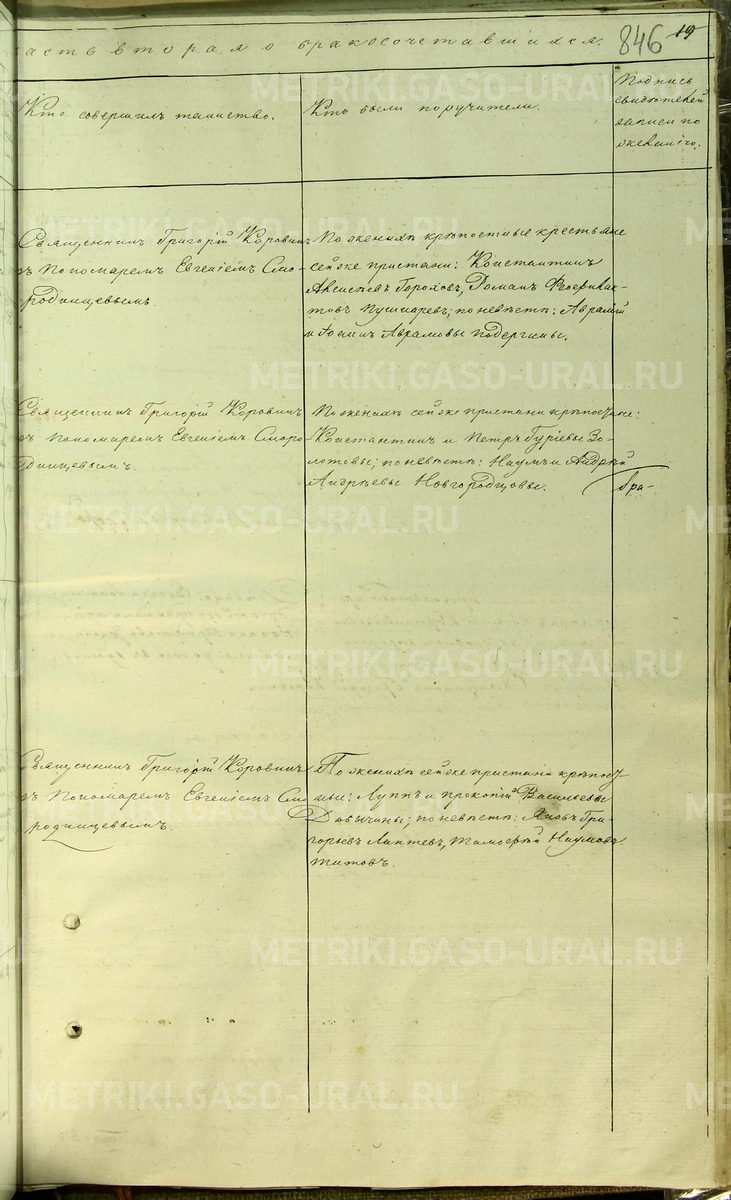 асть вторая о бракосочетавшихся.
846
19
Кто совершилъ таинство.
Кто были поручители.
Подпись
свидѣтелей
записи по
желанію.
Священникъ Григорій Коровинъ
съ Пономаремъ Евгеніемъ Смо-
родинцевымъ.
По женихѣ крѣпостные крестьяне
сейже пристани: Константинъ
Гороховъ, Романъ
Пушкаревъ; по невѣстѣ: Аврамій
и Іоаннъ Аврамовы
Священникъ Григорій Коровинъ
съ Пономаремъ Евгеніемъ Сморо
динцевымъ.
По женихѣ сейже пристани
Константинъ и Петръ Гуріевы Зо-
лотовы; по невѣстѣ: Наумъ и Андрей
Андреевы Новгородцовы.
Гри-
Священникъ Григорій Коровинъ
съ Пономаремъ Евгеніемъ Смо
родинцевымъ.
По женихѣ сейже пристани крѣпост
ные: Луппъ и Прокопій Васильевы
по невѣстѣ: Яковъ Гри-
горьевъ Лаптевъ, Тимофей Наумовъ
Титовъ.
METRIKI.GASO-URAL.RU